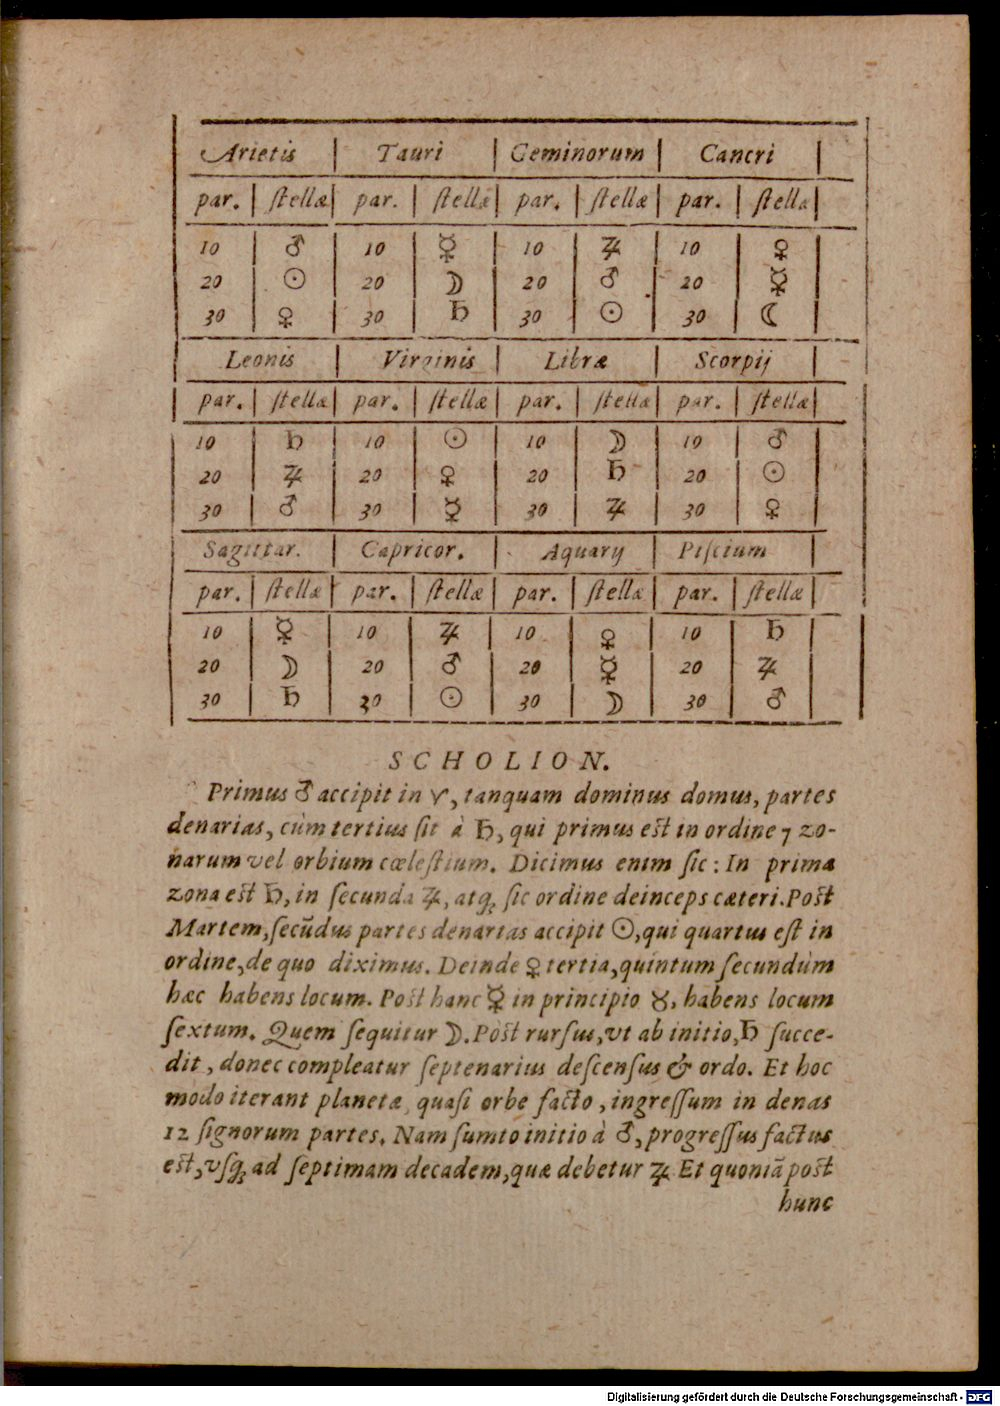 Arietis | Tauri | Geminorum | Cancri
par. | ſtellæ | par. | ſtellæ | par. | ſtellæ | par. | ſtella
10 | ♂ | 10 | ☿ | 10 | ♃ | 10 | ♀
20 | ☉ | 20 | ☽ | 20 | ♂ | 20 | ☿
30 | ♀ | 30 | ♄ | 30 | ☉ | 30 | ☾
Leonis | Virginis | Libræ | Scorpij
par. | ſtellæ | par. | ſtellæ | par. | ſtellæ | par. | ſtellæ
10 | ♄ | 10 | ☉ | 10 | ☽ | 10 | ♂
20 | ♃ | 20 | ♀ | 20 | ♄ | 20 | ☉
30 | ♂ | 30 | ☿ | 30 | ♃ | 30 | ♀
Sagittar. | Capricor. | Aquarij | Piſcium
par. | ſtellæ | par. | ſtellæ | par. | ſtellæ | par. | ſtellæ
10 | ☿ | 10 | ♃ | 10 | ♀ | 10 | ♄
20 | ☽ | 20 | ♂ | 20 | ☿ | 20 | ♃
30 | ♄ | 30 | ☉ | 30 | ☽ | 30 | ♂
SCHOLION.
Primus ♂ accipit in ♈, tanquam dominus domus, partes
denarias, cùm tertius ſit à ♄, qui primus eſt in ordine 7 zo-
narum vel orbium cœleſtium. Dicimus enim ſic: In prima
zona eſt ♄, in ſecunda ♃, atq; ſic ordine deinceps cæteri. Poſt
Martem, ſecũdus partes denarias accipit ☉, qui quartus eſt in
ordine, de quo diximus. Deinde ♀ tertia, quintum ſecundùm
hæc habens locum. Poſt hanc ☿ in principio ♉, habens locum
ſextum. Quem ſequitur ☽. Poſt rurſus, vt ab initio, ♄ ſucce-
dit, donec compleatur ſeptenarius deſcenſus & ordo. Et hoc
modo iterant planetæ, quaſi orbe facto, ingreſſum in denas
12 ſignorum partes. Nam ſumto initio à ♂, progreſſus factus
eſt, vſq; ad ſeptimam decadem, quæ debetur ♃ Et quoniã poſt
hunc
Digitalisierung gefördert durch die Deutsche Forschungsgemeinschaft - DFG